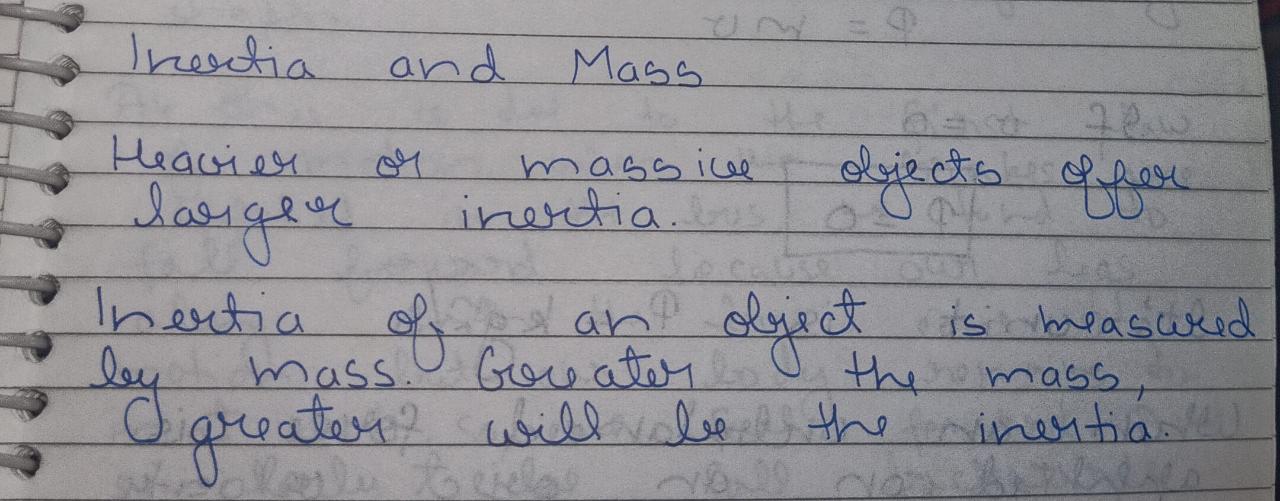 Inertia and Mass
Heavier or massive objects offer
larger inertia.
Inertia of an object is measured
by mass. Greater the mass,
greater will be the inertia.